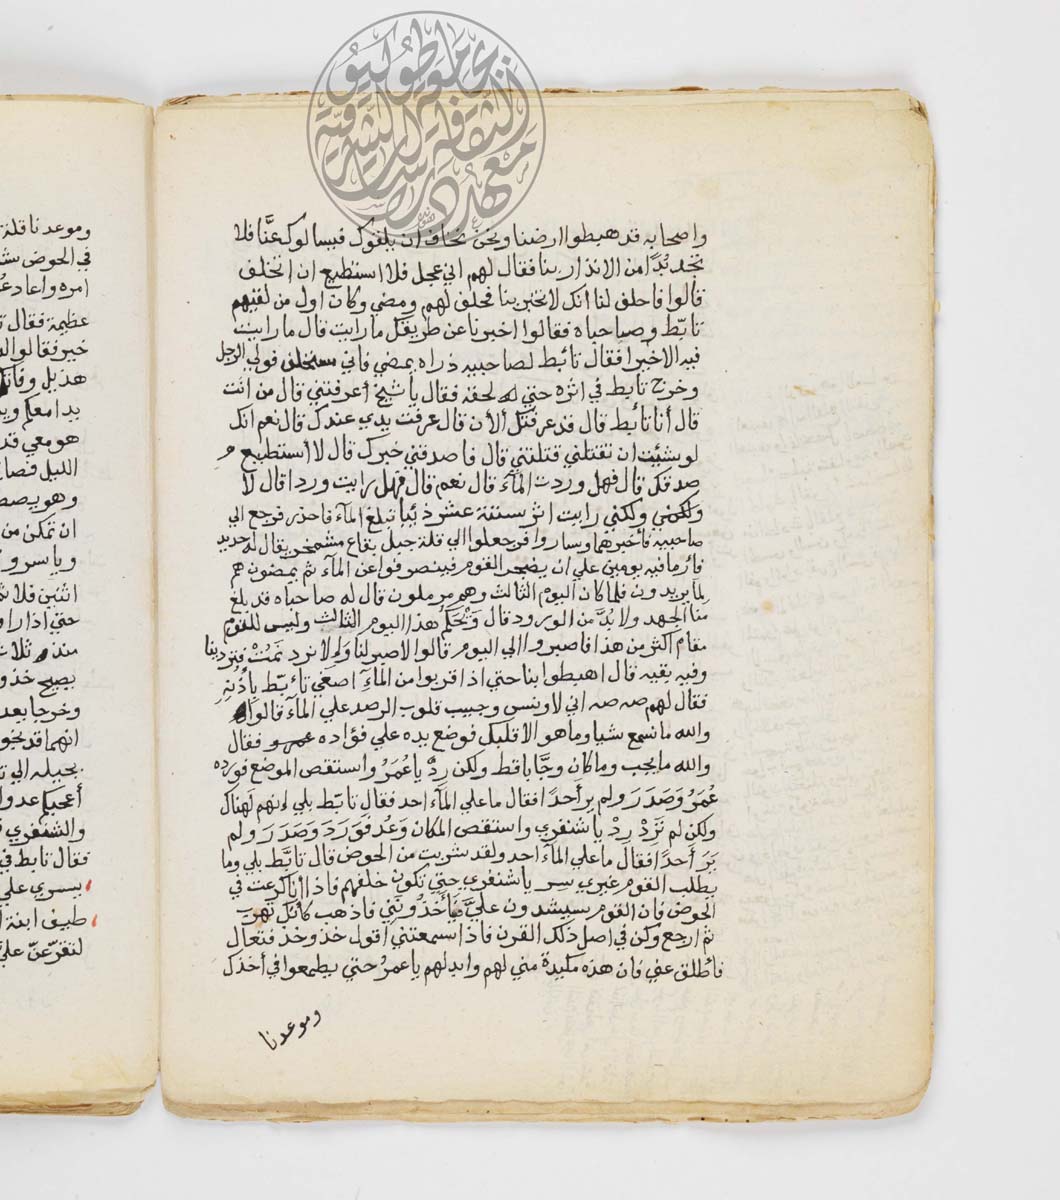 واصحابه قد هبطوا ارضنا ونحن نخاف ان يلقوك فيسالوك عنَّا فلا
تجد بُدًّا من الانذار بنا فقال لهم اني عجل فلا استطيع ان اتخلف
قالوا فاحلف لنا انك لا تخبر بنا فحلف لهم ومضي وكان اول من لقيهم
تابّط وصاحباه فقالوا اخبرنا عن طريقك ما رايت قال ما رايت
فيه الا خيرا فقال تائبط لصاحبيه ذراه يمضي فاني فولي الرجل
وخرج تابط في اثره حتي لحقه فقال يا شيخ أعرفتني قال من انت
قال أنا تائبط قال قد عرفتك ألأن قال عرفت يدي عندك قال نعم انك
لو شئيت ان تقتلني قتلتني قال فاصدقني خبرك قال لا أستطيع
صدقك قال فهل وردت المآء قال نعم قال فهل رايت وردا قال لا
ولكني رايت اثر ستة عشر ذئبا تبلغ المآء فاحذر فرجع الي
صاحبيه فأخبرهما وساروا فرجعلوا الي قلة جبل بقاع مشمخر يقال له حديد
فأزما فيه يومين علي ان يضجر القوم فينصرفوا عن المآء ثم يمضون هم
لما يريدون فلما كان اليوم الثالث وهم مرملون قال له صاحباه قد بلغ
منا الجهد ولا بُدَّ من الورود قال وَيْحكم هذا اليوم الثالث وليس للقوم
مقام اكثر من هذا فاصبروا الي اليوم قالوا لا صبر لنا ولا نرد نَمُتْ فتردبنا
وفيه بقيه قال اهبطوا بنا حتي اذا قربوا من المآءِ اصغي تأبّط بِأُذُنِهِ
فقال لهم صه صه اني لاونس وجيب قلوب الرصد علي المآء قالوا
والله ما نسمع شيا وما هو الا قلبك فوضع يده علي فؤاده فقال
والله ما يجب وما كان وجَّابا قط ولكن رِدْ يا عُمَرُ واستقص الموضع فورده
عُمَرُ وَصَدَرَ ولم ير أحدًا فقال ما علي المآء احد فقال تابّط بلي إنهم لهناك
ولكن لم تُرَدْ رِدْ يا شنفري واستقص المكان وَعُدْ فَوَرَدَ وَصَدَرَ ولم
يَرَ أحدًا فقال ما علي المآء احد ولقد شربت من الحوض قال تابَّط بلي وما
يطلب القوم غيري سر يا شنفري حتي تكون خلفهم فاذا أنا كرعت في
الحوض فان القوم سيشدون عليَّ فيأخذونني فاذهب كانك تهرب
ثم ارجع وكن في اصل ذلك القرن فاذا سمعتني اقول خذ وخذ فتعال
فأطلق عني فان هذه مكيدة مني لهم وابد لهم يا عمرُ حتي يطمعوا في أخذك
وموعدنا
وموعدنا قلة
في الحوض
عظيمة فقال
هذيل
هو معي قد
الليل
ان تمكن من
حتي اذا
يصيح خذ
وخرجا بعد
انهما قد
والشنفري
فقال تابط في
يسري علي
طيف ابنة
جامعة طوكيو
معهد دراسات الثقافة الشرقية